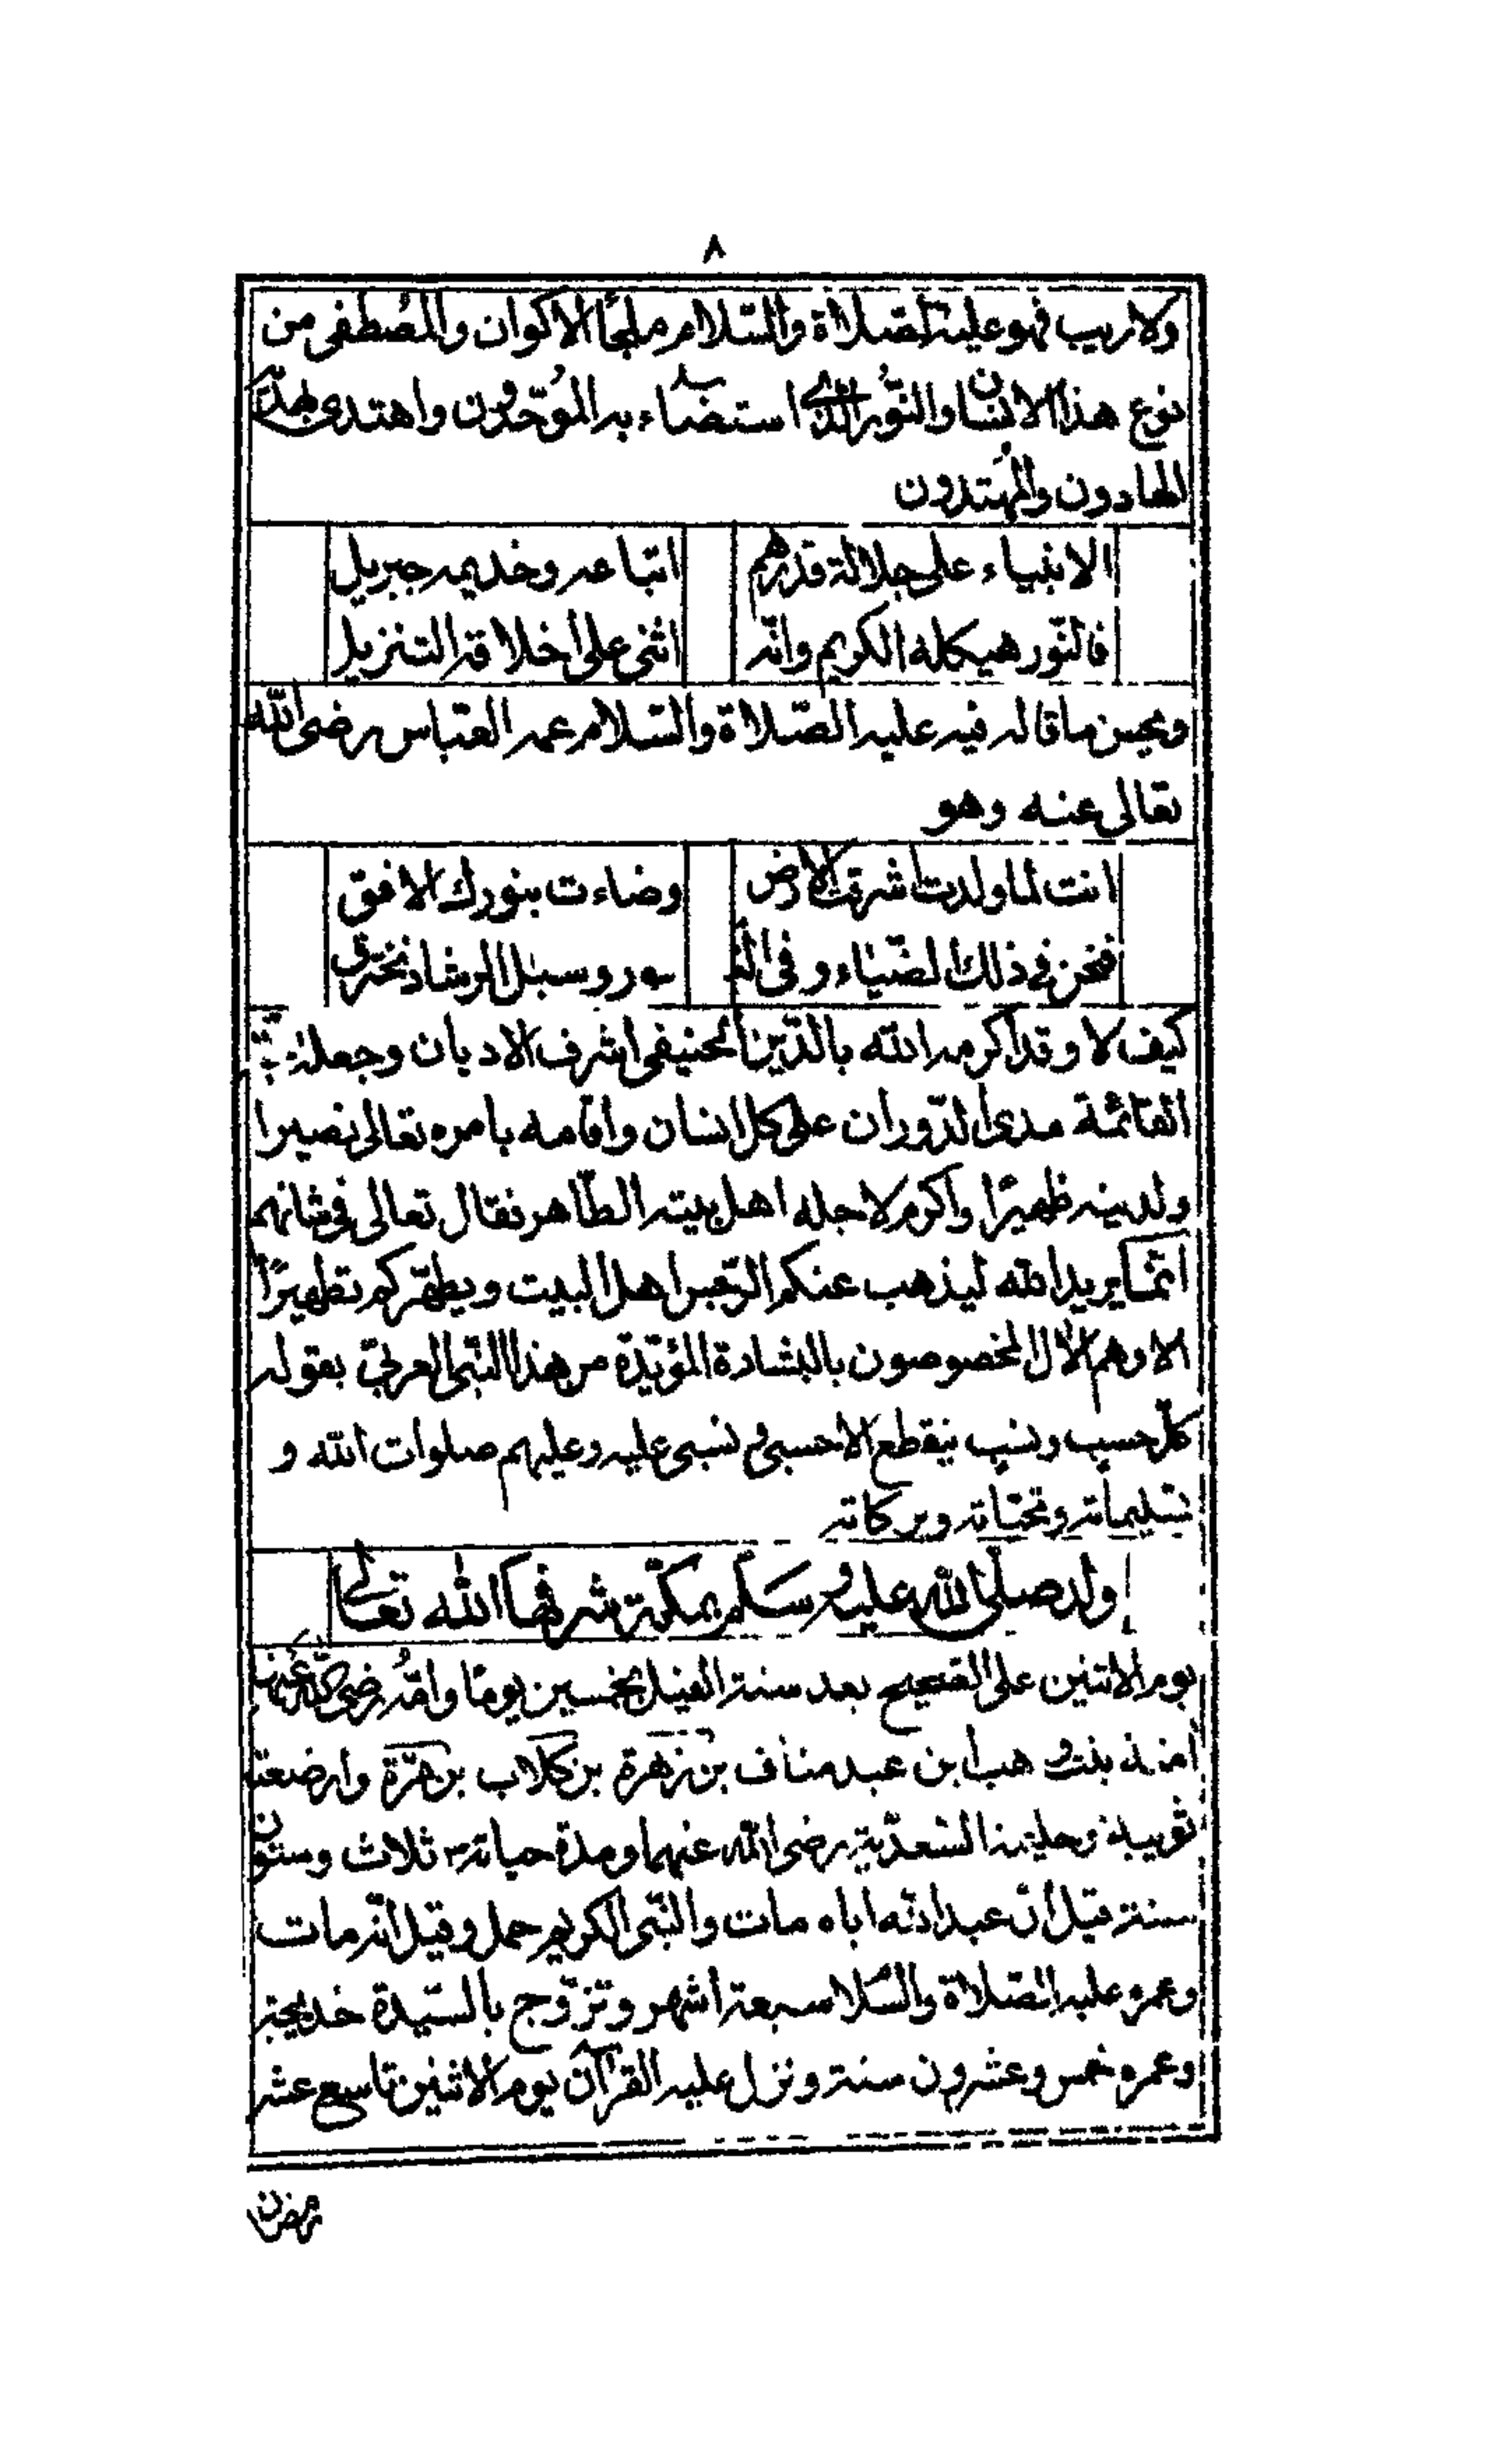 ٨
ولا ريب فهو عليه الصّلاة والسّلام ملجأ الاكوان والمُصْطفى من
نوع هذا الانسان والنّور الذى استضاء به المُوَحّدون واهتدى بهديه
الهادون والمُهتدون
الانبياء على جلالة قدرهم اتباعه وخديمه جبريل
فالنّور هيكله الكريم وانّه اثنى على أخلاقه التنزيل
ويحسن ما قاله فيه عليه الصّلاة والسّلام عمه العبّاس رضى الله
تعالى عنه وهو
انت لما ولدت اشرقت الارض وضاءت بنورك الافق
فنحن فى ذلك الضّياء وفى النّـ ـور وسبل الرشاد نخترق
كيف لا وقد اكرمه الله بالدّين الحنيفى اشرف الاديان وجعله
القائمة مدى الدّوران على كل انسان واقامه بامره تعالى نصيرا
ولدينه ظهيرًا واكرم لاجله اهل بيته الطّاهر فقال تعالى فى شانهم
انّما يريد الله ليذهب عنكم الرّجس اهل البيت ويطهّركم تطهيرًا
الا وهم الآل المخصوصون بالبشارة المؤيّدة من هذا النّبى العربىّ بقوله
كلّ حسب ونسب ينقطع الا حسبى ونسبى عليه وعليهم صلوات الله و
تسليماته وتحيّاته وبركاته
ولد صلّى الله عليه وسَلّم بمكّة شرفها الله تعالى
يوم الاثنين على الصّحيح بعد سنة الفيل بخمسين يومًا وامّه رضى الله عنها
آمنة بنت وهب ابن عبد مناف بن زهرة بن كلاب بن مرّة وارضعته
ثويبة وحليمة السّعديّة رضى الله عنهما ومدة حياته ثلاث وستون
سنة قيل انّ عبد الله اباه مات والنّبى الكريم حمل وقيل انّه مات
وعمره عليه الصّلاة والسّلا سبعة اشهر وتزوّج بالسّيدة خديجة
وعمره خمس وعشرون سنة ونزل عليه القرآن يوم الاثنين تاسع عشر